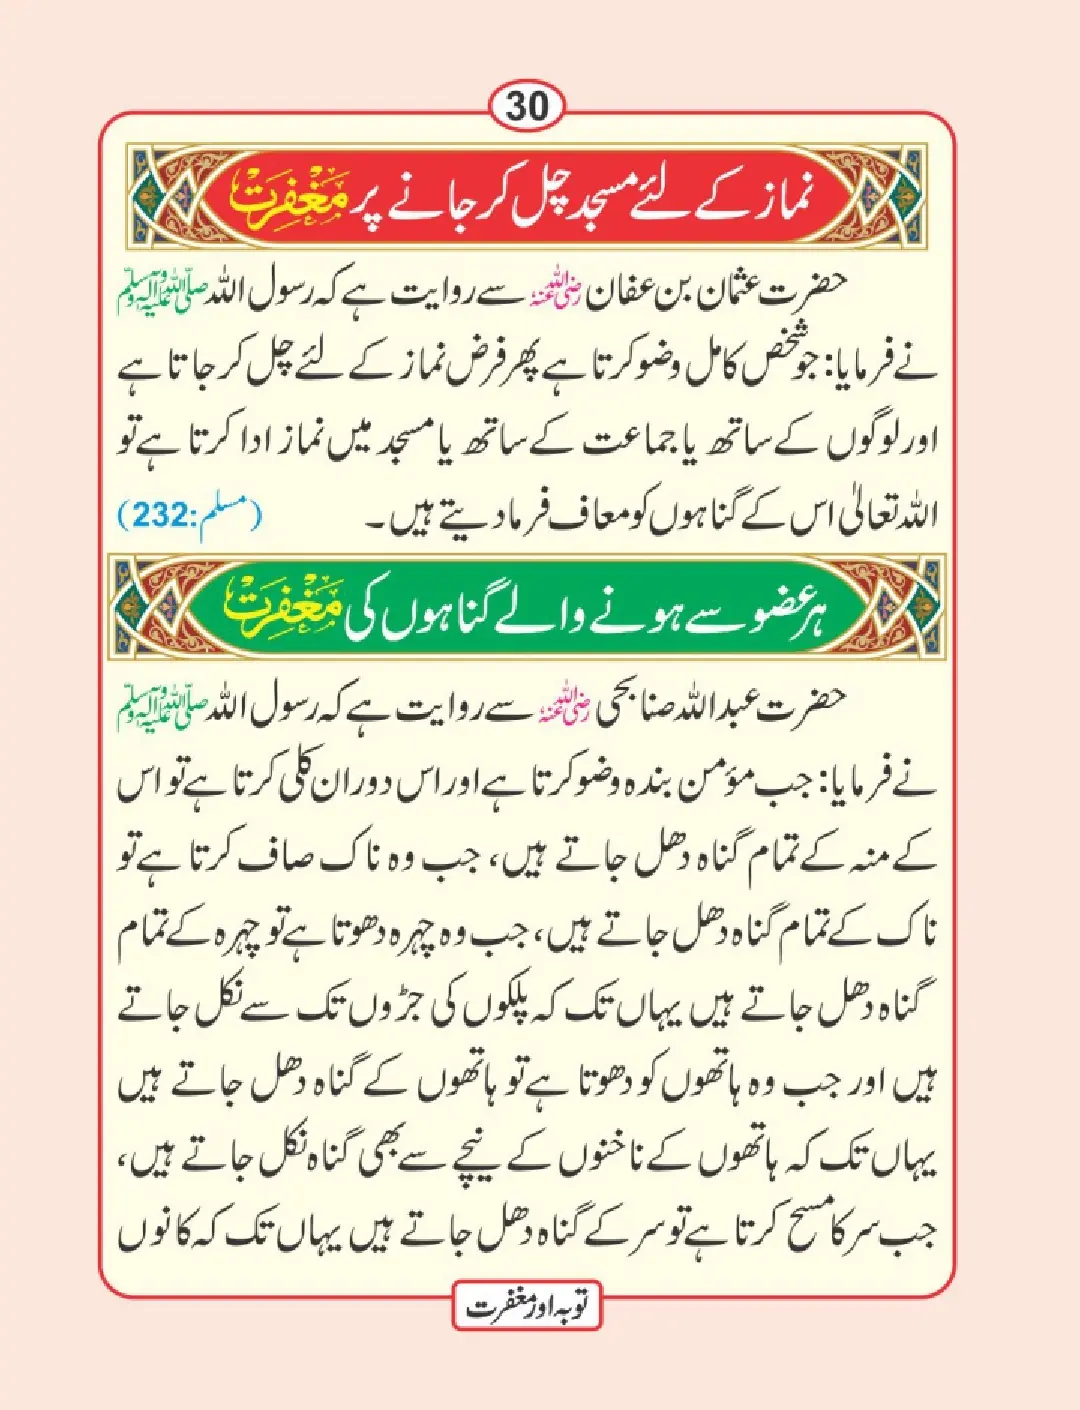 30
نماز کے لئے مسجد چل کر جانے پر مغفرت
حضرت عثمان بن عفان رضی اللہ عنہ سے روایت ہے کہ رسول اللہ صلی اللہ علیہ وآلہ وسلم
نے فرمایا: جو شخص کامل وضو کرتا ہے پھر فرض نماز کے لئے چل کر جاتا ہے
اور لوگوں کے ساتھ یا جماعت کے ساتھ یا مسجد میں نماز ادا کرتا ہے تو
اللہ تعالیٰ اس کے گناہوں کو معاف فرما دیتے ہیں۔ (مسلم:232)
ہر عضو سے ہونے والے گناہوں کی مغفرت
حضرت عبداللہ صنابحی رضی اللہ عنہ سے روایت ہے کہ رسول اللہ صلی اللہ علیہ وآلہ وسلم
نے فرمایا: جب مؤمن بندہ وضو کرتا ہے اور اس دوران کلی کرتا ہے تو اس
کے منہ کے تمام گناہ دھل جاتے ہیں، جب وہ ناک صاف کرتا ہے تو
ناک کے تمام گناہ دھل جاتے ہیں، جب وہ چہرہ دھوتا ہے تو چہرہ کے تمام
گناہ دھل جاتے ہیں یہاں تک کہ پلکوں کی جڑوں تک سے نکل جاتے
ہیں اور جب وہ ہاتھوں کو دھوتا ہے تو ہاتھوں کے گناہ دھل جاتے ہیں
یہاں تک کہ ہاتھوں کے ناخنوں کے نیچے سے بھی گناہ نکل جاتے ہیں،
جب سر کا مسح کرتا ہے تو سر کے گناہ دھل جاتے ہیں یہاں تک کہ کانوں
توبہ اور مغفرت